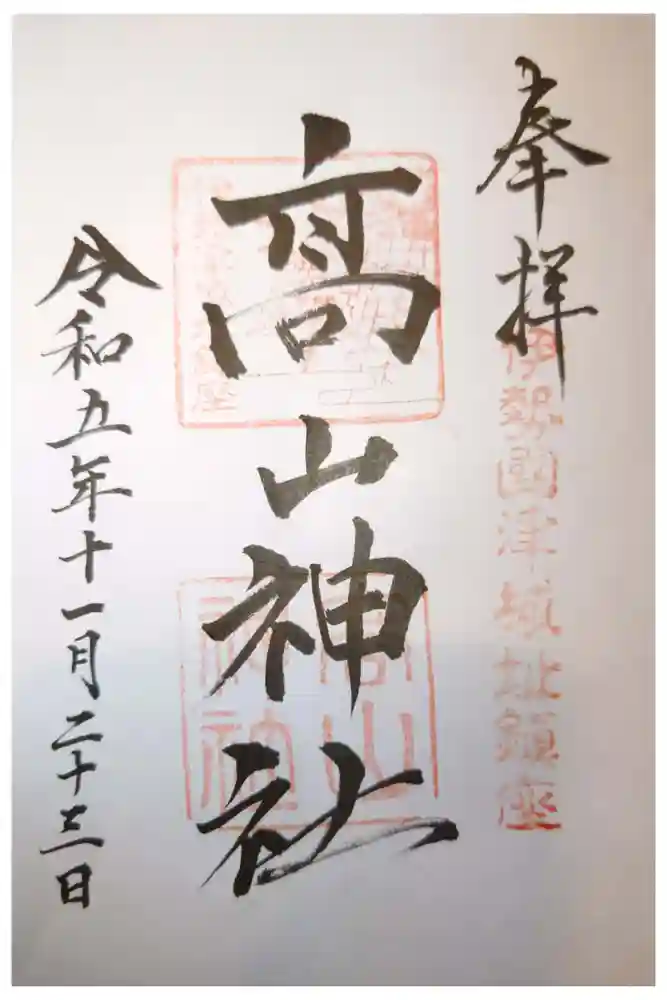 奉拝
伊勢國津城址鎮座
髙山神社
高山
神社
令和五年十一月二十三日